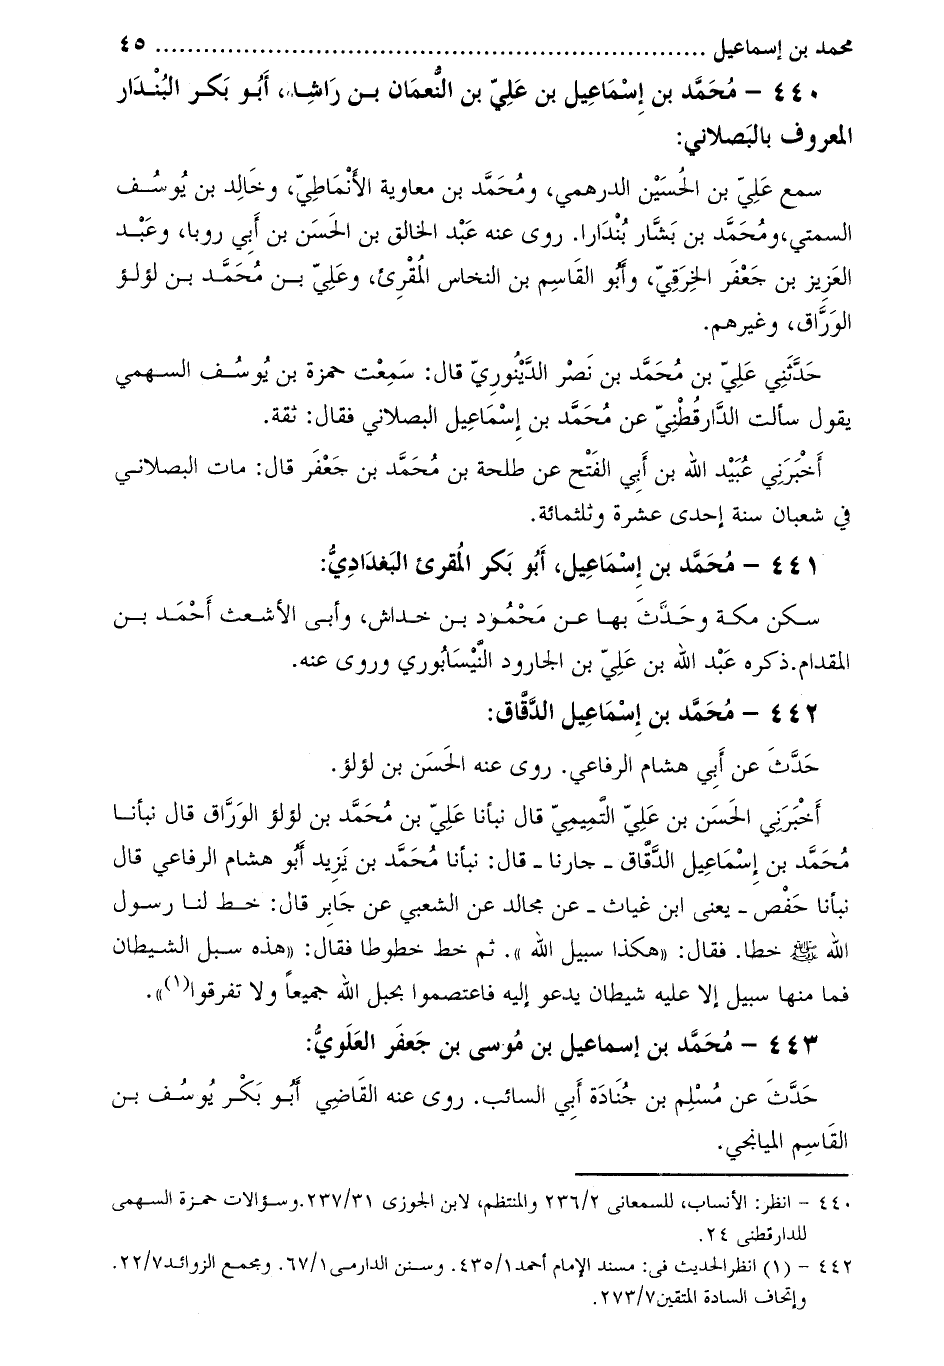 محمد بن إسماعيل ..................................................................... ٤٥
٤٤٠ - مُحَمَّد بن إِسْمَاعِيل بن عَلِيّ بن النُّعمَان بـن رَاشِد، أَبُو بَكر البُنْـدَار
المعروف بالبَصلاني:
سمع عَلِيّ بن الحُسَيْن الدرهمي، ومُحَمَّد بن معاوية الأَنْمَاطِيّ، وخَالِد بن يُوسُـف
السمتي،ومُحَمَّد بن بَشَّار بُنْدَارا. روى عنه عَبْد الخالق بن الحَسَن بن أَبي روبا، وعَبْـد
العَزِيز بن جَعْفَر الخِرَقِيّ، وأَبُو القَاسِم بن النخاس المُقْرِئ، وعَلِيّ بـن مُحَمَّـد بـن لؤلؤ
الوَرَّاق، وغيرهم.
حَدَّثَنِي عَلِيّ بن مُحَمَّد بن نَصْر الدَّيْنُورِيّ قال: سَمِعْت حمزة بن يُوسُـف السـهمي
يقول سألت الدَّارقُطْنِيّ عن مُحَمَّد بن إِسْمَاعِيل البصلاني فقال: ثقة.
أَخْبَرَنِي عُبَيْد الله بن أَبي الفَتْح عن طلحة بن مُحَمَّد بن جَعْفَر قال: مات البصلاني
في شعبان سنة إحدى عشرة وثلثمائة.
٤٤١ - مُحَمَّد بن إِسْمَاعِيل، أَبُو بَكر المُقرئ البَغدَادِيُّ:
سـكن مكـة وحَـدَّثَ بهـا عـن مَحْمُـود بـن خـداش، وأبـى الأشـعث أَحْمَـد بـن
المقدام.ذكره عَبْد الله بن عَلِيّ بن الجارود النَّيْسَابُوري وروى عنه.
٤٤٢ - مُحَمَّد بن إِسْمَاعِيل الدَّقَّاق:
حَدَّثَ عن أَبي هشام الرفاعي. روى عنه الحَسَن بن لؤلؤ.
أَخْبَرَنِي الحَسَن بن عَلِيّ التَّمِيمِيّ قال نبأنا عَلِيّ بن مُحَمَّد بن لؤلؤ الوَرَّاق قال نبأنـا
مُحَمَّد بن إِسْمَاعِيل الدَّقَّاق ـ جارنا ـ قال: نبأنا مُحَمَّد بن يَزِيد أَبُو هشام الرفاعي قال
نبأنا حَفْص ـ يعنى ابن غياث ـ عن مجالد عن الشعبي عن جَابِر قال: خـط لنـا رسـول
الله ﷺ خطا. فقال: «هكذا سبيل الله ». ثم خط خطوطا فقال: «هذه سـبل الشـيطان
فما منها سبيل إلا عليه شيطان يدعو إليه فاعتصموا بحبل الله جميعاً ولا تفرقوا(١)».
٤٤٣ - مُحَمَّد بن إسماعيل بن مُوسى بن جَعفَر العَلَويُّ:
حَدَّثَ عن مُسْلِم بن جُنَادَة أَبي السائب. روى عنه القَاضِي أَبُـو بَكْـر يُوسُـف بـن
القَاسِم الميانجي.
٤٤٠ - انظر: الأنساب، للسمعانى ٢٣٦/٢ والمنتظم، لابن الجوزى ٢٣٧/٣١.وسـؤالات حمـزة السـهمى
للدارقطنى ٢٤.
٤٤٢ - (١) انظرالحديث فى: مسند الإمام أحمد٤٣٥/١. وسـنن الدارمـى٦٧/١. ومجمـع الزوائـد٢٢/٧.
وإتحاف السادة المتقين٢٧٣/٧.